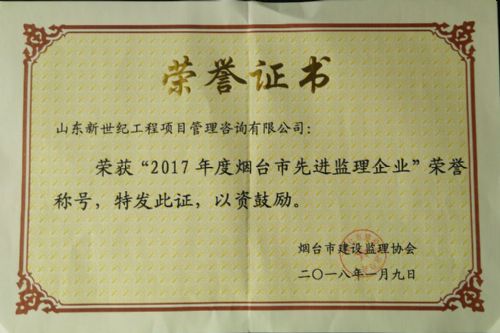 荣誉证书
山东新世纪工程项目管理咨询有限公司：
荣获“2017年度烟台市先进监理企业”荣誉
称号，特发此证，以资鼓励。
烟台市建设监理协会
二〇一八年一月九日